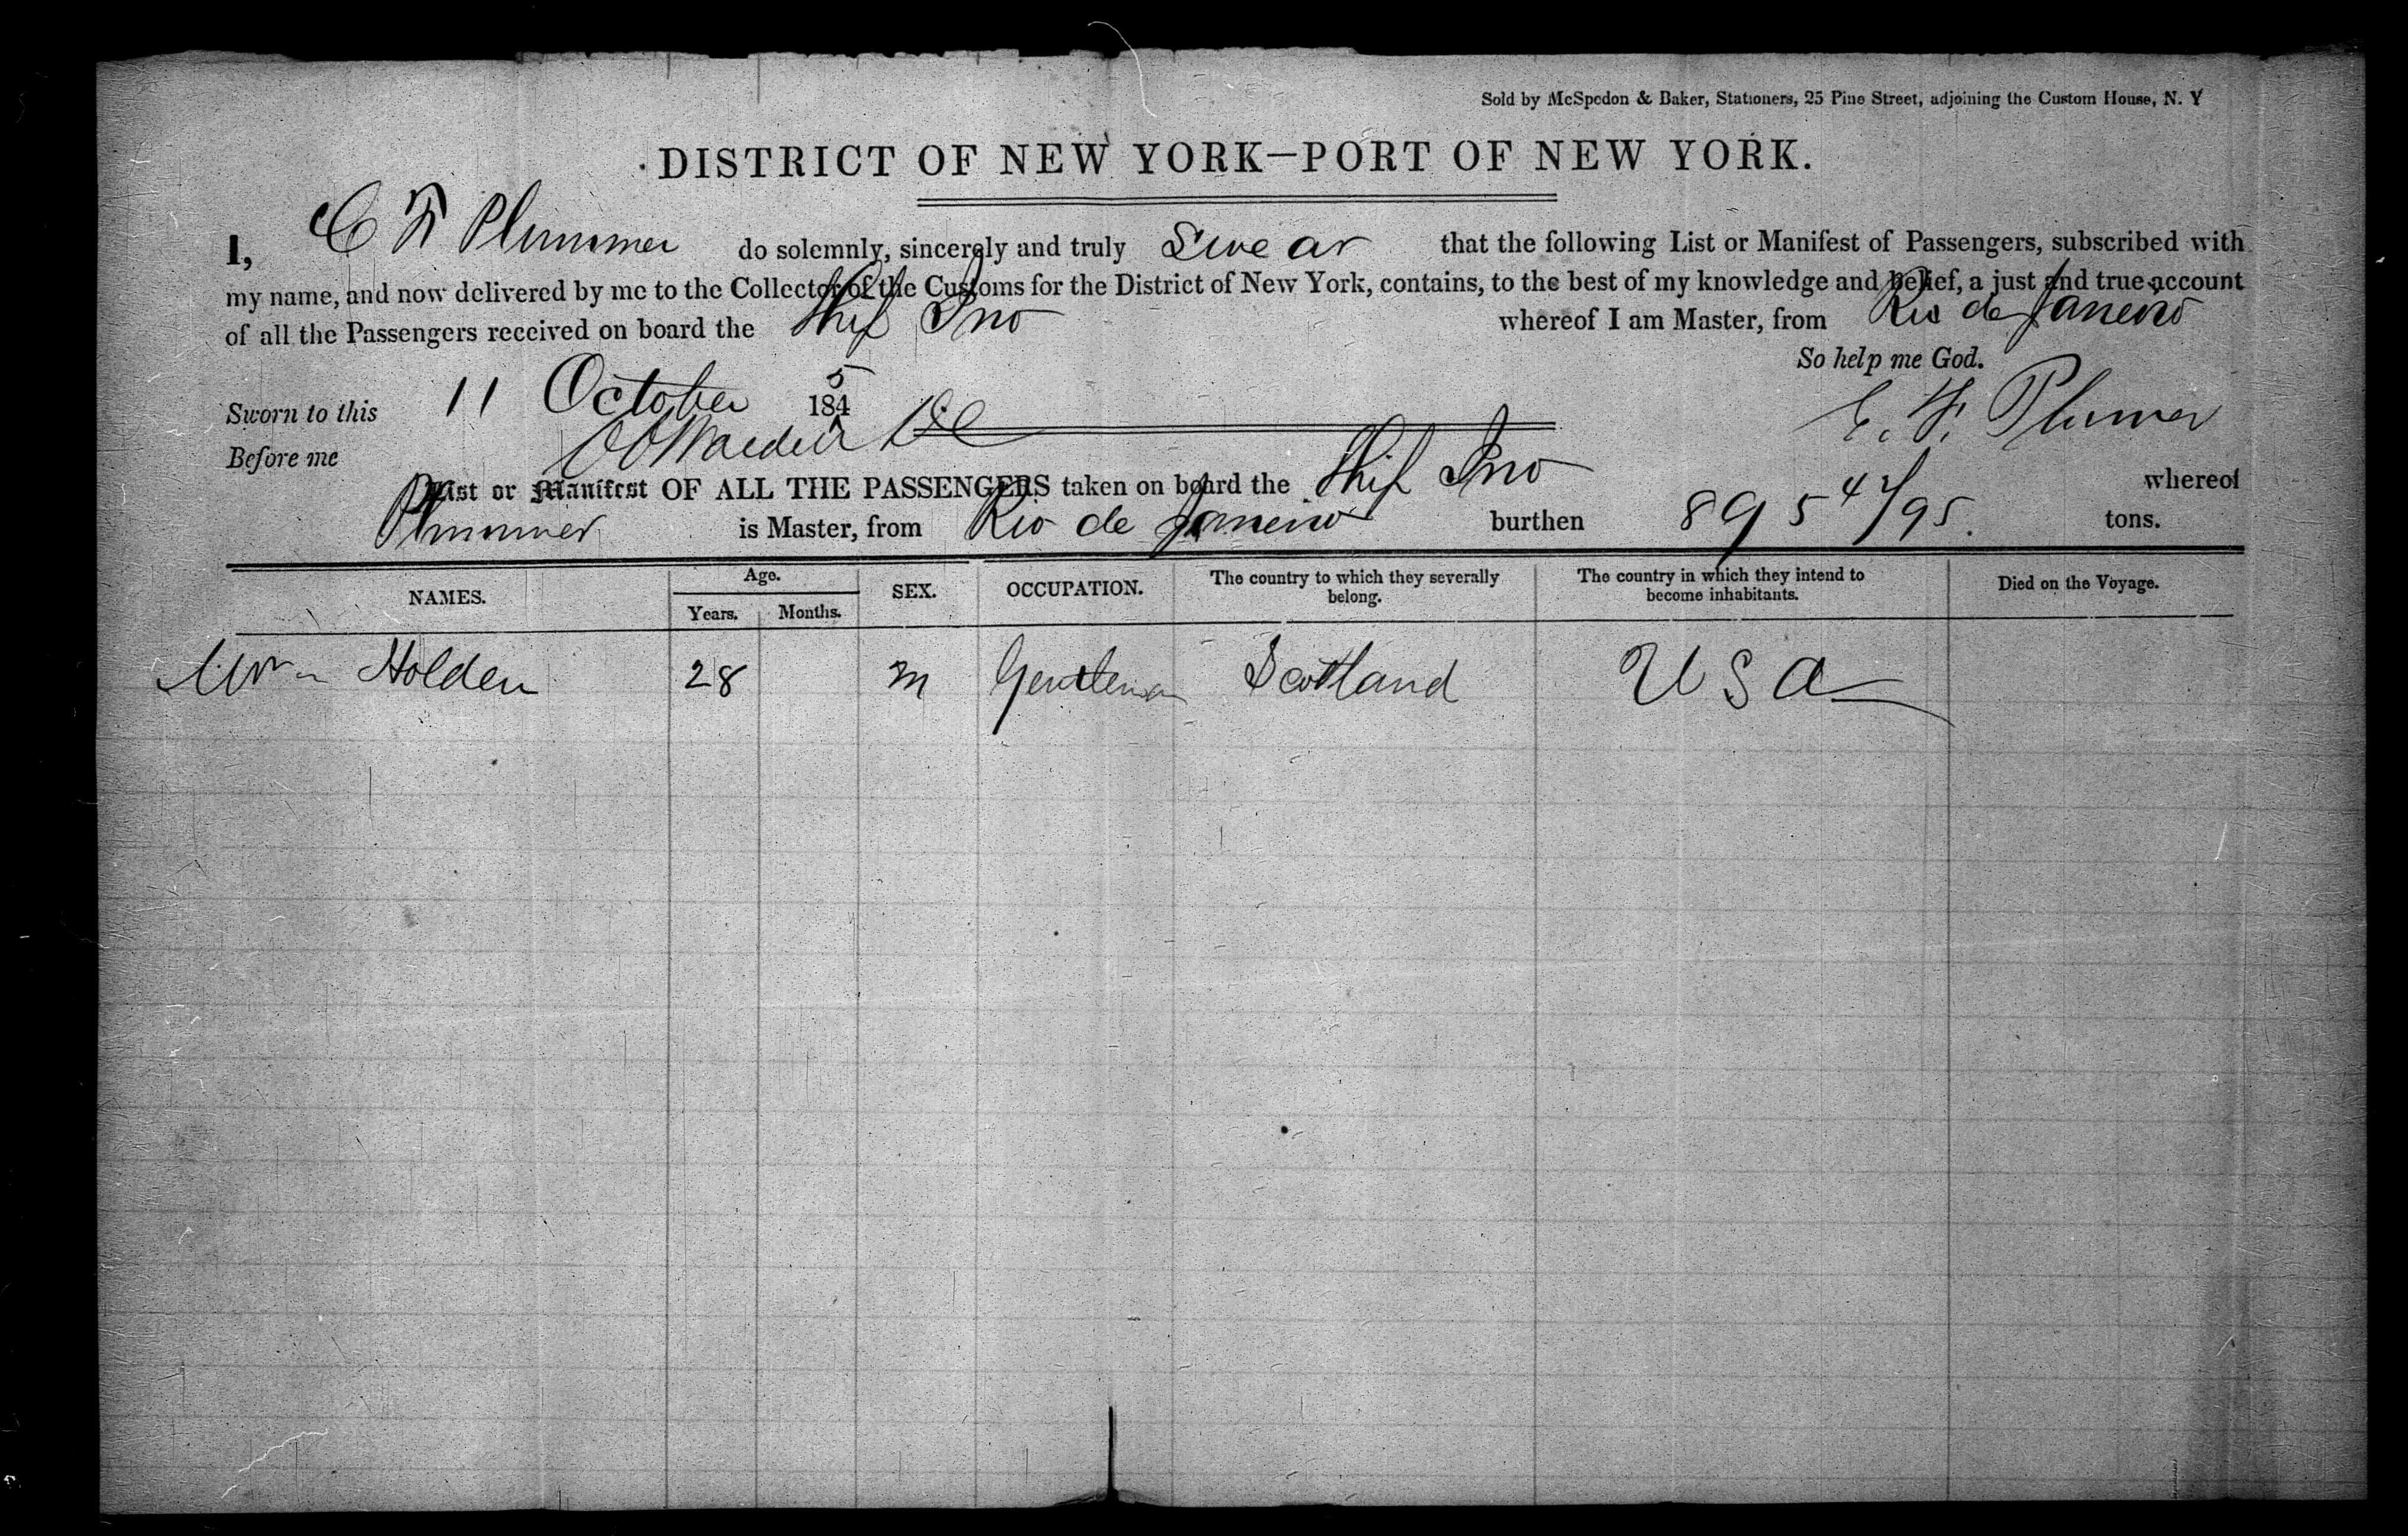 Sold by McSpedon & Baker, Stationers, 25 Pine Street, adjoining the Custom House, N. Y
DISTRICT OF NEW YORK—PORT OF NEW YORK.
I, C F Plummer do solemnly, sincerely and truly Swear that the following List or Manifest of Passengers, subscribed with
my name, and now delivered by me to the Collector of the Customs for the District of New York, contains, to the best of my knowledge and belief, a just and true account
of all the Passengers received on board the Ship Ino whereof I am Master, from Rio de Janeiro
So help me God.
Sworn to this 11 October 1845
E. F. Plumer
Before me
List or Manifest OF ALL THE PASSENGERS taken on board the Ship Ino whereof
Plummer is Master, from Rio de Janeiro burthen 895 4/95. tons.
NAMES. Age. Years. Months. SEX. OCCUPATION. The country to which they severally belong. The country in which they intend to become inhabitants. Died on the Voyage.
Wm Holden 28 M Gentleman Scotland U S A